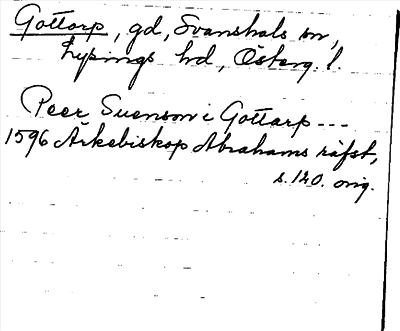 Gottorp, gd, Svanshals sn,
Lysings hd, Österg. l.
Peer Suenson i Gottarp ---
1596 Ärkebiskop Abrahams räfst,
s. 120. orig.